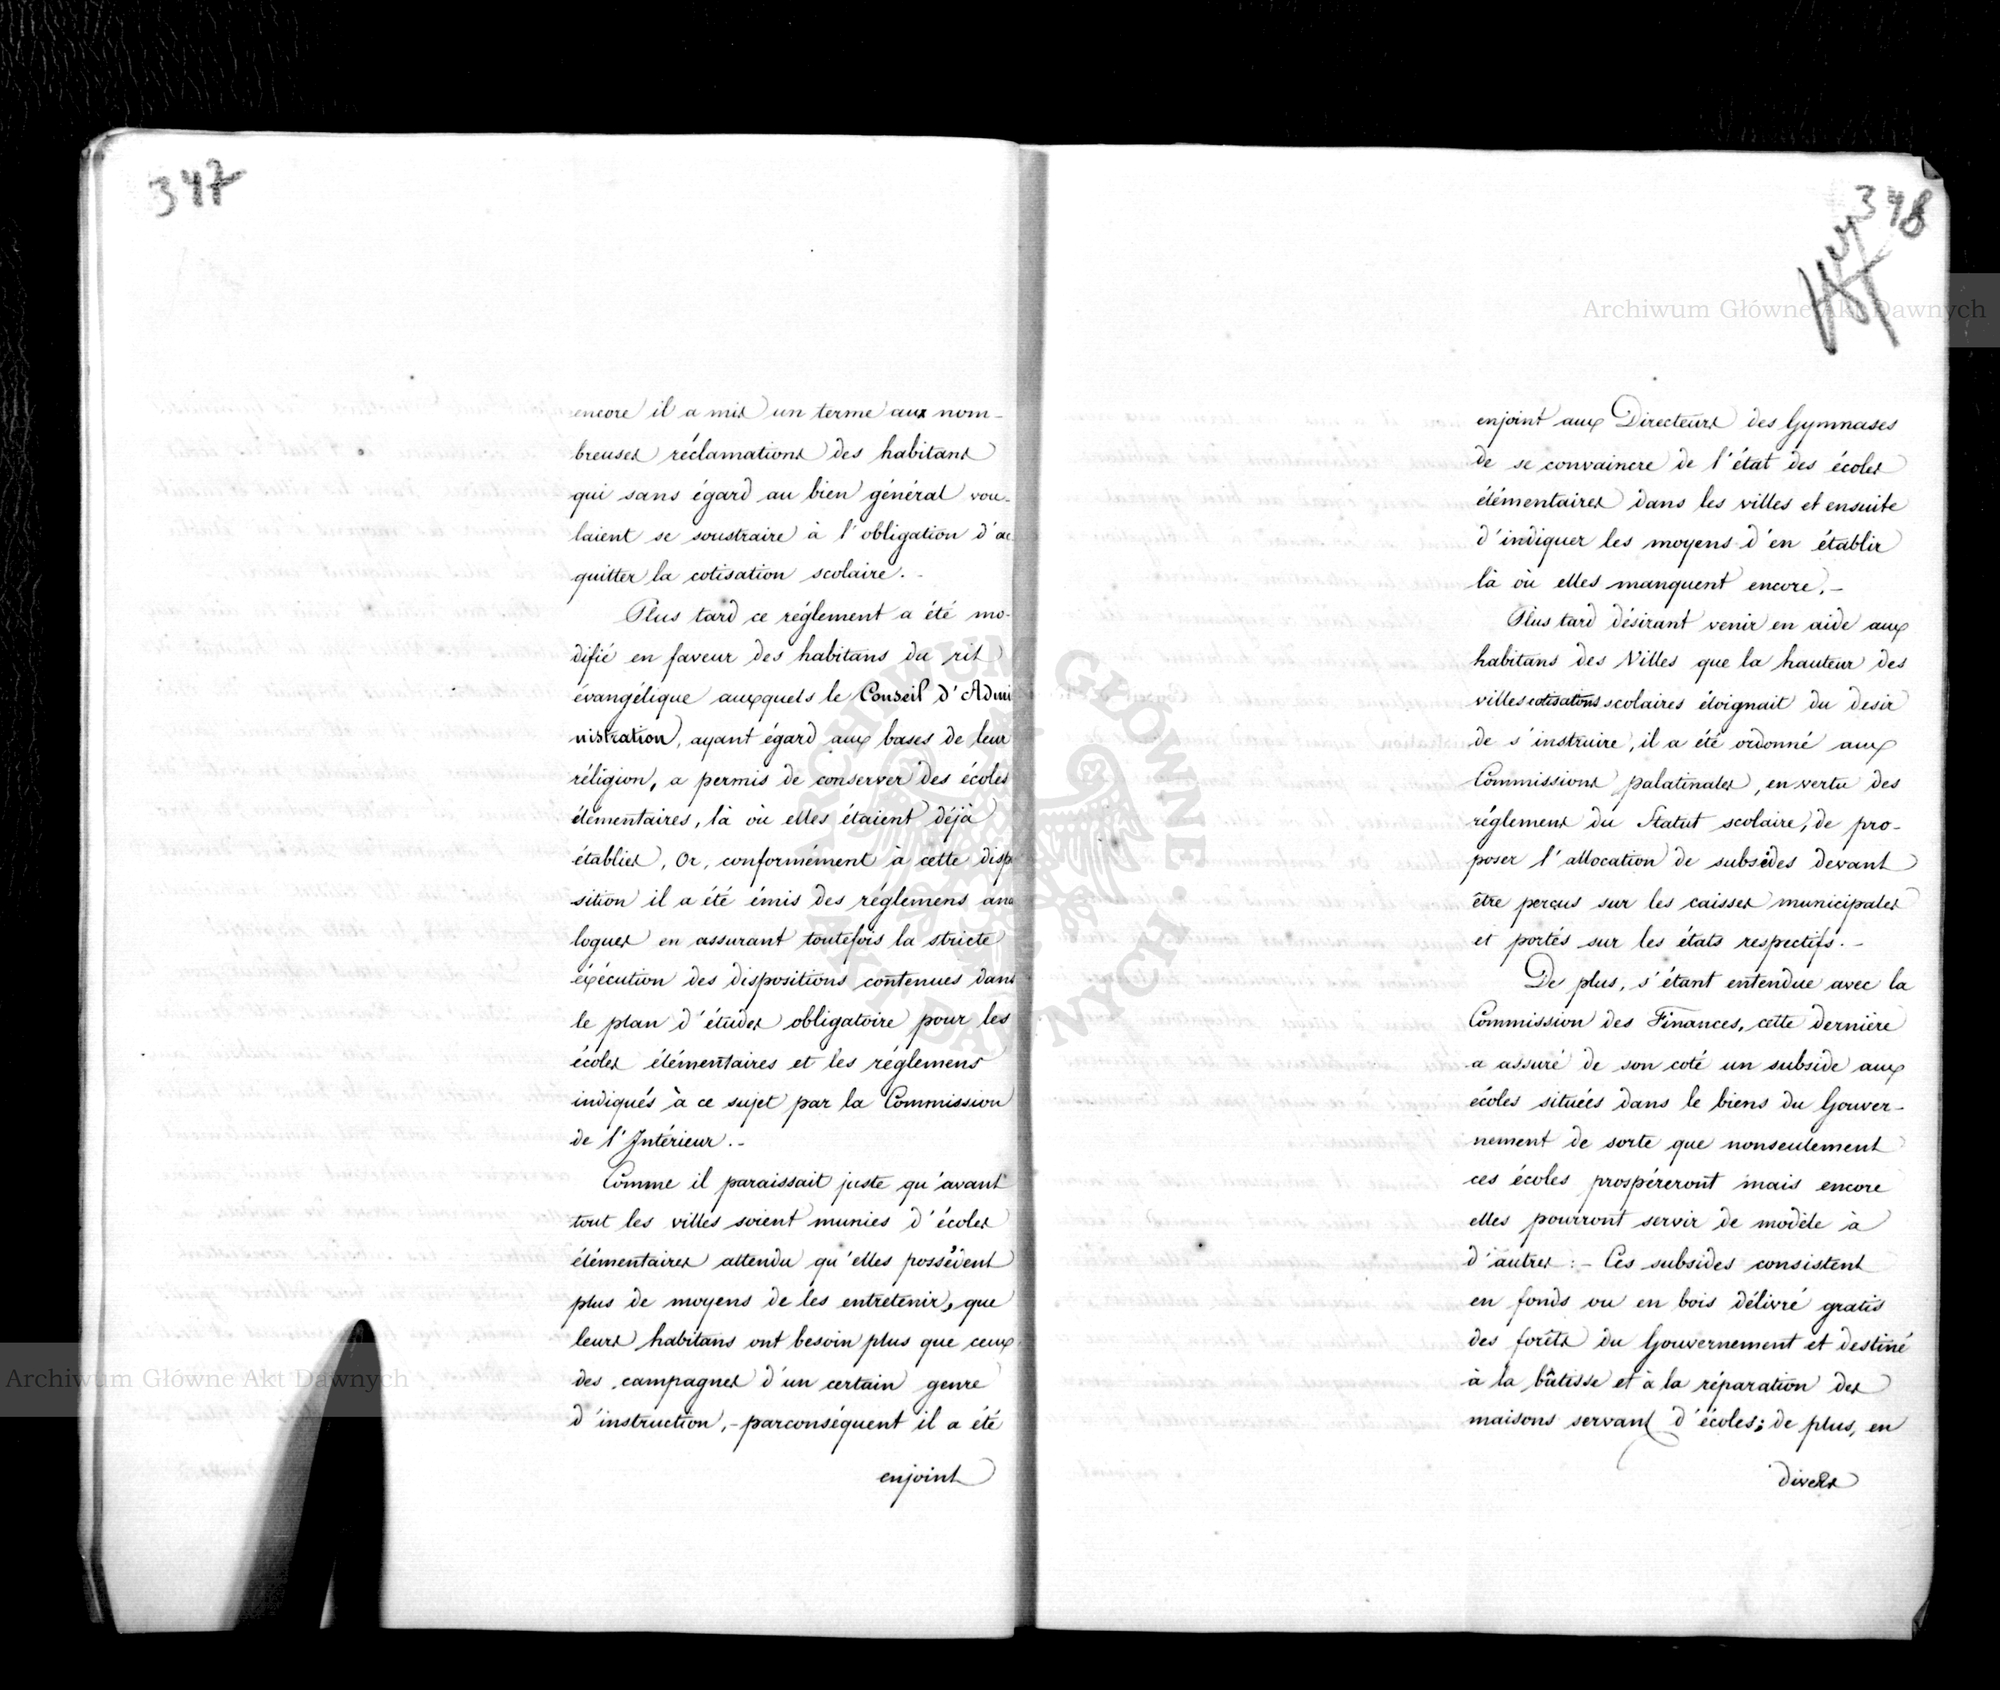 347
encore il a mis un terme aux nom-
breuses réclamations des habitans
qui sans égard au bien général vou-
laient se soustraire à l'obligation d'ac
quitter la cotisation scolaire. -
Plus tard ce réglement a été mo-
difié en faveur des habitans du rit
évangélique auxquels le Conseil d'Admi
nistration, ayant égard aux bases de leur
réligion, a permis de conserver des écoles
élémentaires, là où elles étaient déjà
établies, Or, conformément à cette dispo
sition il a été émis des réglemens ana
logues en assurant toutefois la stricte
éxécution des dispositions contenues dans
le plan d'études obligatoire pour les
écoles élémentaires et les réglemens
indiqués à ce sujet par la Commission
de l'Intérieur. -
Comme il paraissait juste qu'avant
tout les villes soient munies d'écoles
élémentaires attendu qu'elles possèdent
plus de moyens de les entretenir, que
leurs habitans ont besoin plus que ceux
des campagnes d'un certain genre
d'instruction, - parconséquent il a été
enjoint
348
enjoint aux Directeurs des Gymnases
de se convaincre de l'état des écoles
élémentaires dans les villes et ensuite
d'indiquer les moyens d'en établir
là où elles manquent encore. -
Plus tard désirant venir en aide aux
habitans des Villes que la hauteur des
villes cotisations scolaires éloignait du desir
de s'instruire, il a été ordonné aux
Commissions palatinales, en vertu des
réglemens du Statut scolaire, de pro-
poser l'allocation de subsides devant
être perçus sur les caisses municipales
et portés sur les états respectifs. -
De plus, s'étant entendue avec la
Commission des Finances, cette dernière
a assuré de son coté un subside aux
écoles situées dans le biens du Gouver-
nement de sorte que nonseulement
ces écoles prospéreront mais encore
elles pourront servir de modèle à
d'autres : - Ces subsides consistent
en fonds ou en bois délivré gratis
des forêts du Gouvernement et destiné
à la bâtisse et à la réparation des
maisons servant d'écoles; de plus, en
divers
Archiwum Główne Akt Dawnych
Archiwum Główne Akt Dawnych
ARCHIWUM GŁÓWNE • AKT DAWNYCH •